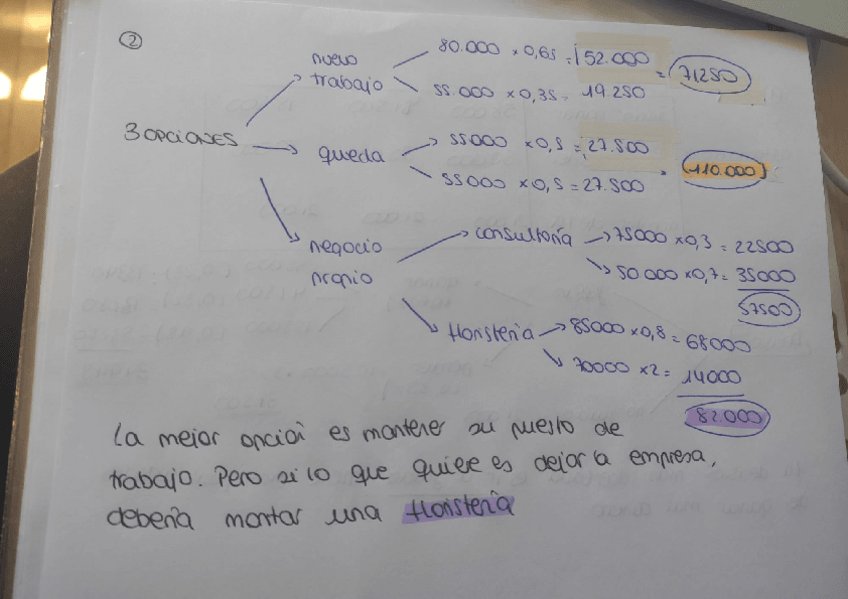 2
nuevo trabajo
80.000 x 0,65 = 52.000
55.000 x 0,35 = 19.250
= 71250
3 OPCIONES
queda
55000 x 0,5 = 27.500
55000 x 0,5 = 27.500
110.000
negocio propio
consultoria
75000 x 0,3 = 22500
50.000 x 0,7 = 35000
57500
floristeria
85000 x 0,8 = 68000
70000 x 2 = 14000
82.000
La mejor opcion es mantener su puesto de
trabajo. Pero si lo que quiere es dejar la empresa,
deberia montar una floristeria